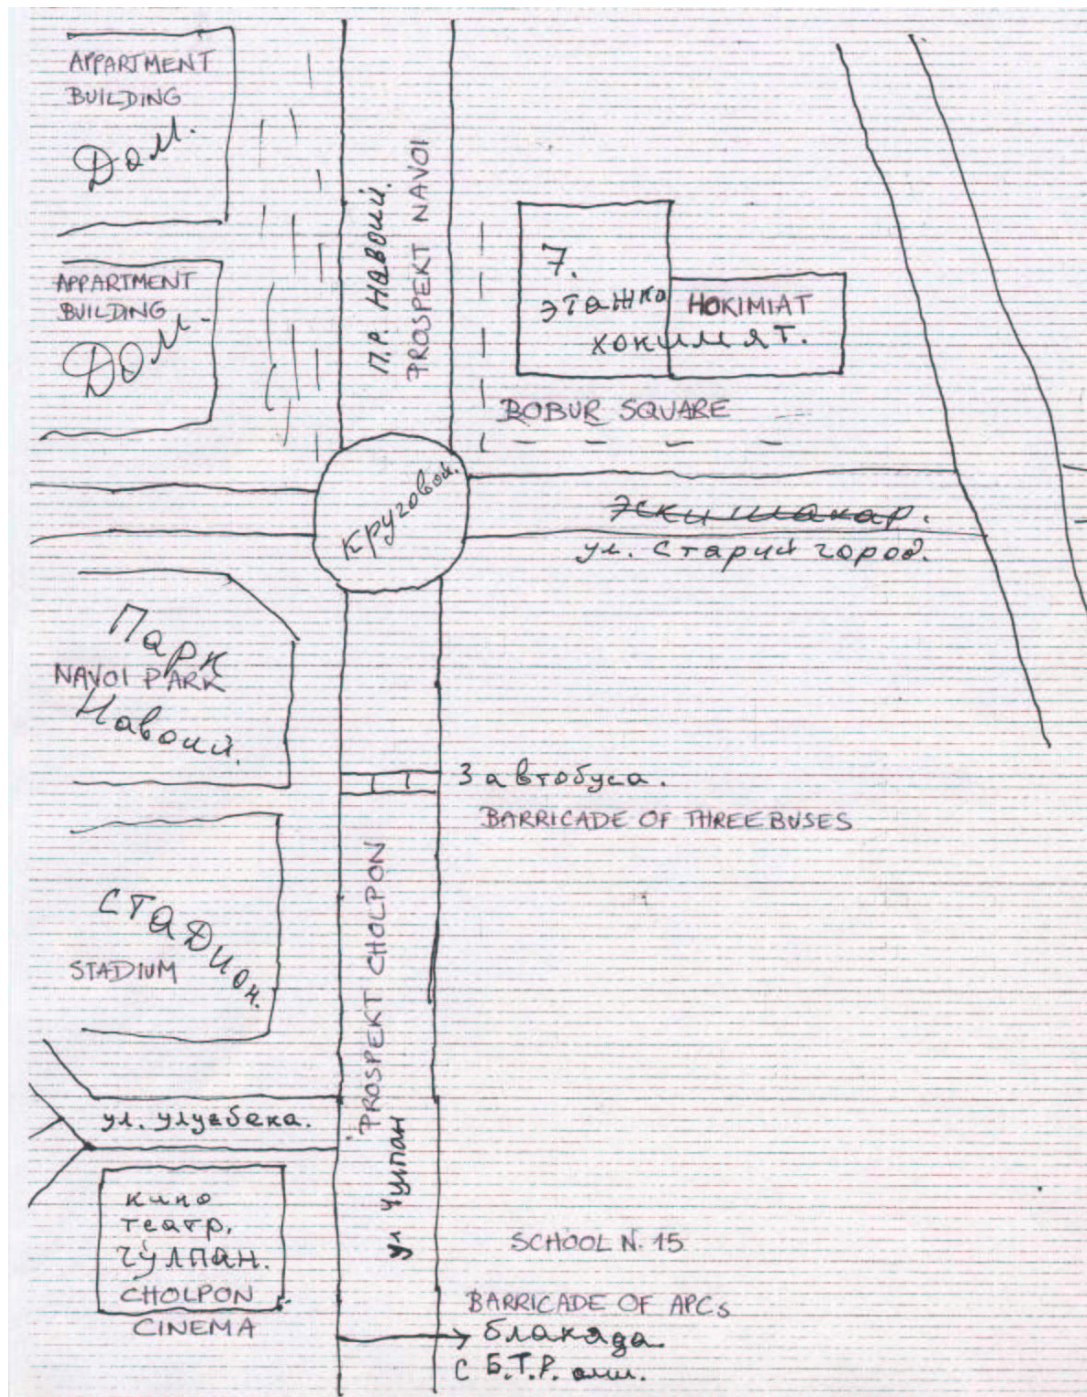 APPARTMENT
BUILDING
Дом.
П.Р. Навоий.
PROSPEKT NAVOI
APPARTMENT
BUILDING
Дом.
7.
этажка
HOKIMIAT
хокимят.
BOBUR SQUARE
Круговой.
Эски шахар.
ул. Старий город.
Парк
NAVOI PARK
Навоий.
3 автобуса.
BARRICADE OF THREE BUSES
СТАДИОН.
STADIUM
PROSPEKT CHOLPON
ул. улугбека.
ул Чулпан
кино
театр.
Чулпан.
CHOLPON
CINEMA
SCHOOL N. 15
BARRICADE OF APCs
блакада
с Б.Т.Р. ами.